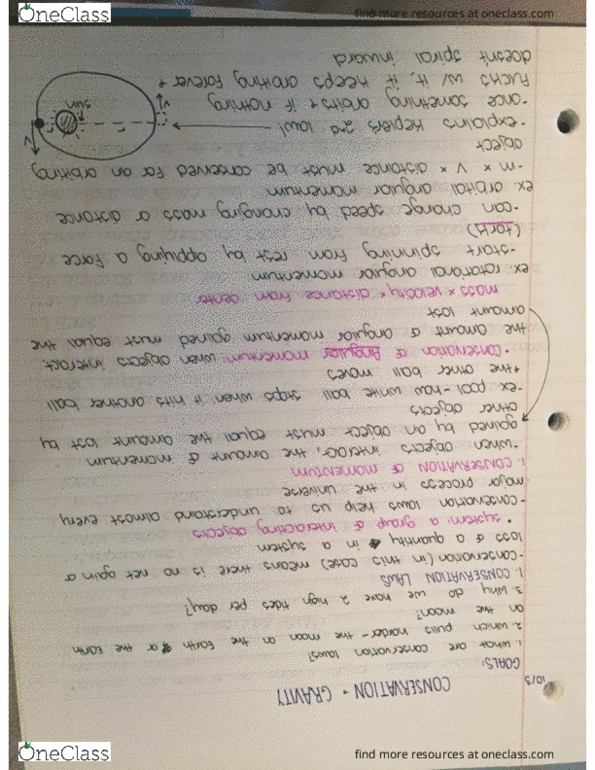 OneClass
find more resources at oneclass.com
10/3
CONSERVATION + GRAVITY
GOALS:
1. what are conservation laws?
2. which pulls harder - the moon on the Earth or the Earth
on the moon?
3. Why do we have 2 high tides per day?
1. CONSERVATION LAWS
-conservation (in this case) means there is no net gain or
loss of a quantity in a system
• system: a group of interacting objects
-conservation laws help us to understand almost every
major process in the universe
1. CONSERVATION OF MOMENTUM
-when objects interact, the amount of momentum
gained by an object must equal the amount lost by
other objects
-ex. pool - how white ball stops when it hits another ball
+ the other ball moves
• Conservation of Angular momentum: when objects interact,
the amount of angular momentum gained must equal the
amount lost
mass x velocity x distance from center
ex. rotational angular momentum
-start spinning from rest by applying a force
-can change speed by changing mass or distance
ex. orbital angular momentum
-m x v x distance must be conserved for an orbiting
object
-explains Kepler's 2nd law!
-once something orbits + if nothing
fucks w/ it, it keeps orbiting forever +
doesnt spiral inward
sun
V
V
OneClass
find more resources at oneclass.com